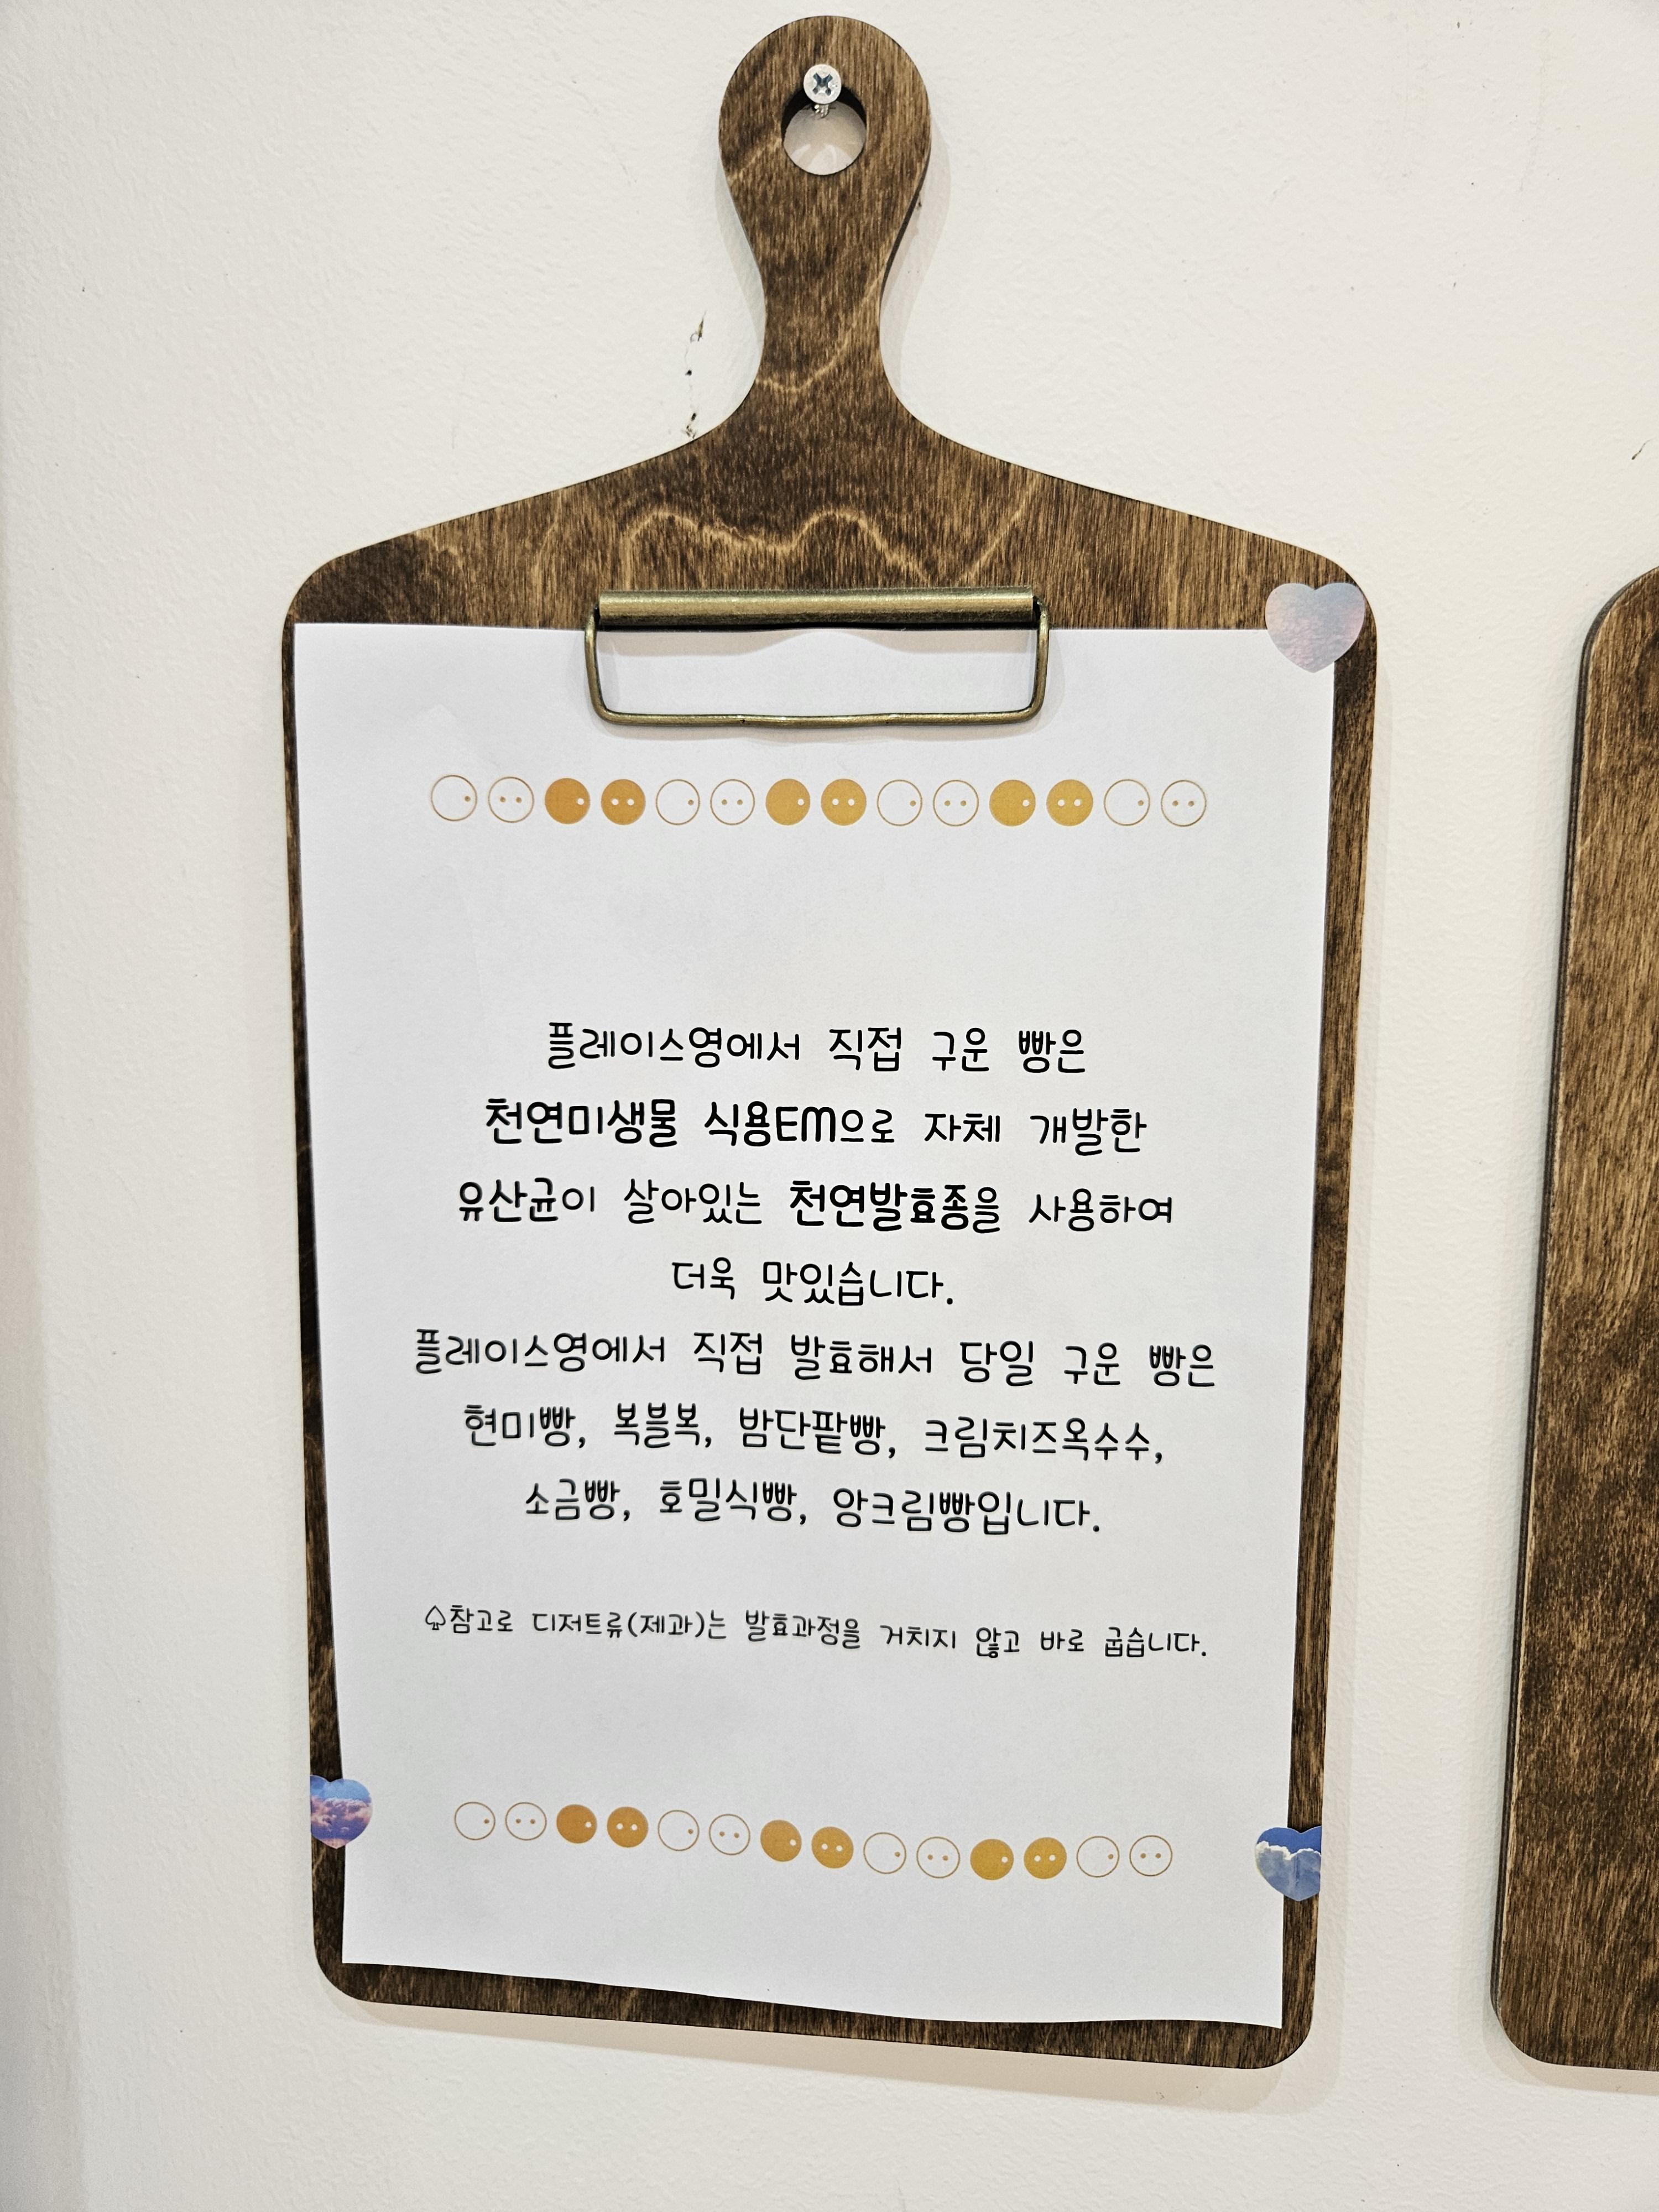 플레이스영에서 직접 구운 빵은
천연미생물 식용EM으로 자체 개발한
유산균이 살아있는 천연발효종을 사용하여
더욱 맛있습니다.
플레이스영에서 직접 발효해서 당일 구운 빵은
현미빵, 복블복, 밤단팥빵, 크림치즈옥수수,
소금빵, 호밀식빵, 앙크림빵입니다.
♤참고로 디저트류(제과)는 발효과정을 거치지 않고 바로 굽습니다.